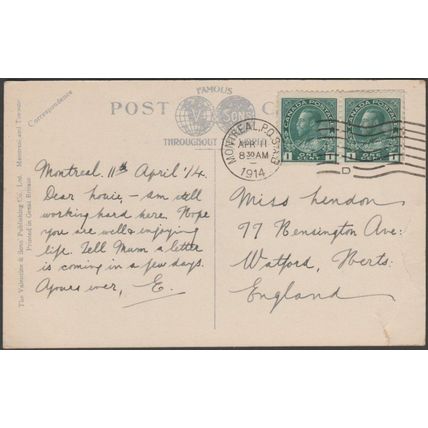 FAMOUS
POST C
V SONS
THROUGHOUT
Correspondence
The Valentine & Sons' Publishing Co. Ltd. Montreal and Toronto
Printed in Great Britain
CANADA POSTAGE
1 1
CANADA POSTAGE
1 1
MONTREAL, P.Q.
APR 11
8 30 AM
1914
D
Montreal. 11th April '14.
Dear Louie, - am still
working hard here. Hope
you are well & enjoying
life. Tell Mum a letter
is coming in a few days.
Yours ever, E.
Miss Lendon
77 Kensington Ave:
Watford, Herts.
England